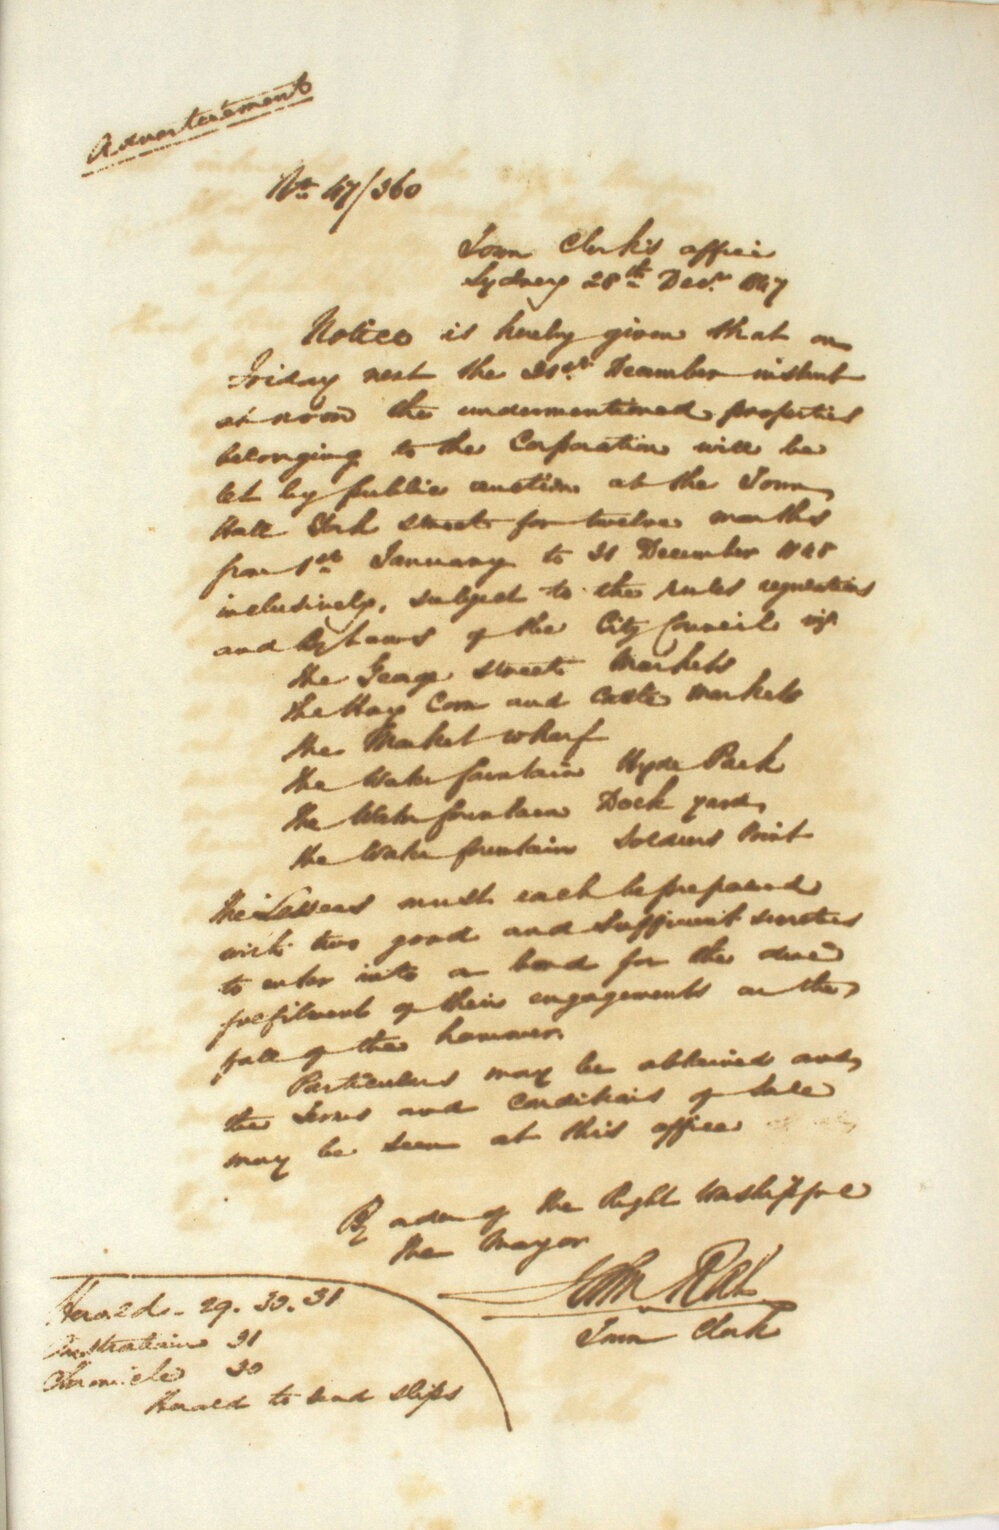 Advertisement
No 47/360
Town Clerk's office
Sydney 28th Decr. 1847
Notice is hereby given that on
Friday next the 31st December instant
at noon the undermentioned properties
belonging to the Corporation will be
let by public auction at the Town
Hall York street for twelve months
from 1st January to 31 December 1848
inclusively, subject to the rules regulations
and By Laws of the City Council viz
the George street Markets
the Hay Corn and Cattle Markets
the Market wharf
the Water fountain Hyde Park
the Water fountain Dock yard
the Water fountain Soldiers Point
The Lessees must each be prepared
with two good and sufficient sureties
to enter into a bond for the due
fulfilment of their engagements on the
fall of the hammer.
Particulars may be obtained and
the Terms and Conditions of Sale
may be seen at this office
By order of the Right Worshipful
the Mayor
John Rae
Town Clerk
Herald - 29. 30. 31
Australian 31
Chronicle 30
Herald to send slips